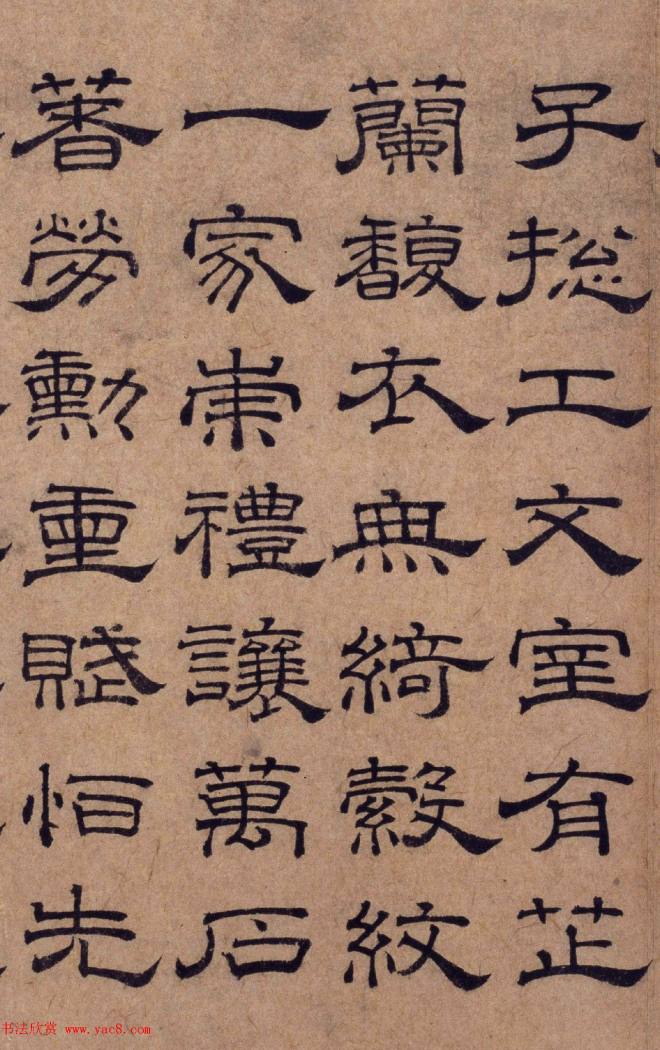 子揔工文室有芷
蘭馥衣無綺縠紋
一家崇禮讓萬石
著勞勳重賦恒先
书法欣赏 www.yac8.com